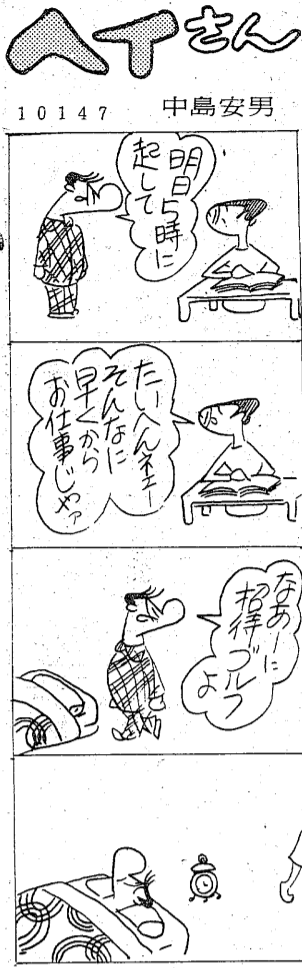 ヘイさん
10147 中島安男
明日5時に
起して
たーいへんネェー
そんなに
早くから
お仕事じゃァ
なあーに
招待ゴルフ
よ